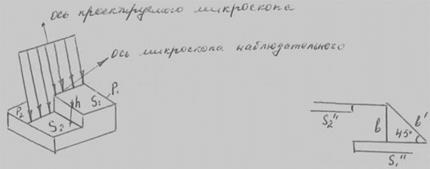 ось проектируемого микроскопа
ось микроскопа наблюдательного
P₁
S₁
h
P₂
S₂
S₂"
b
b'
45°
S₁"